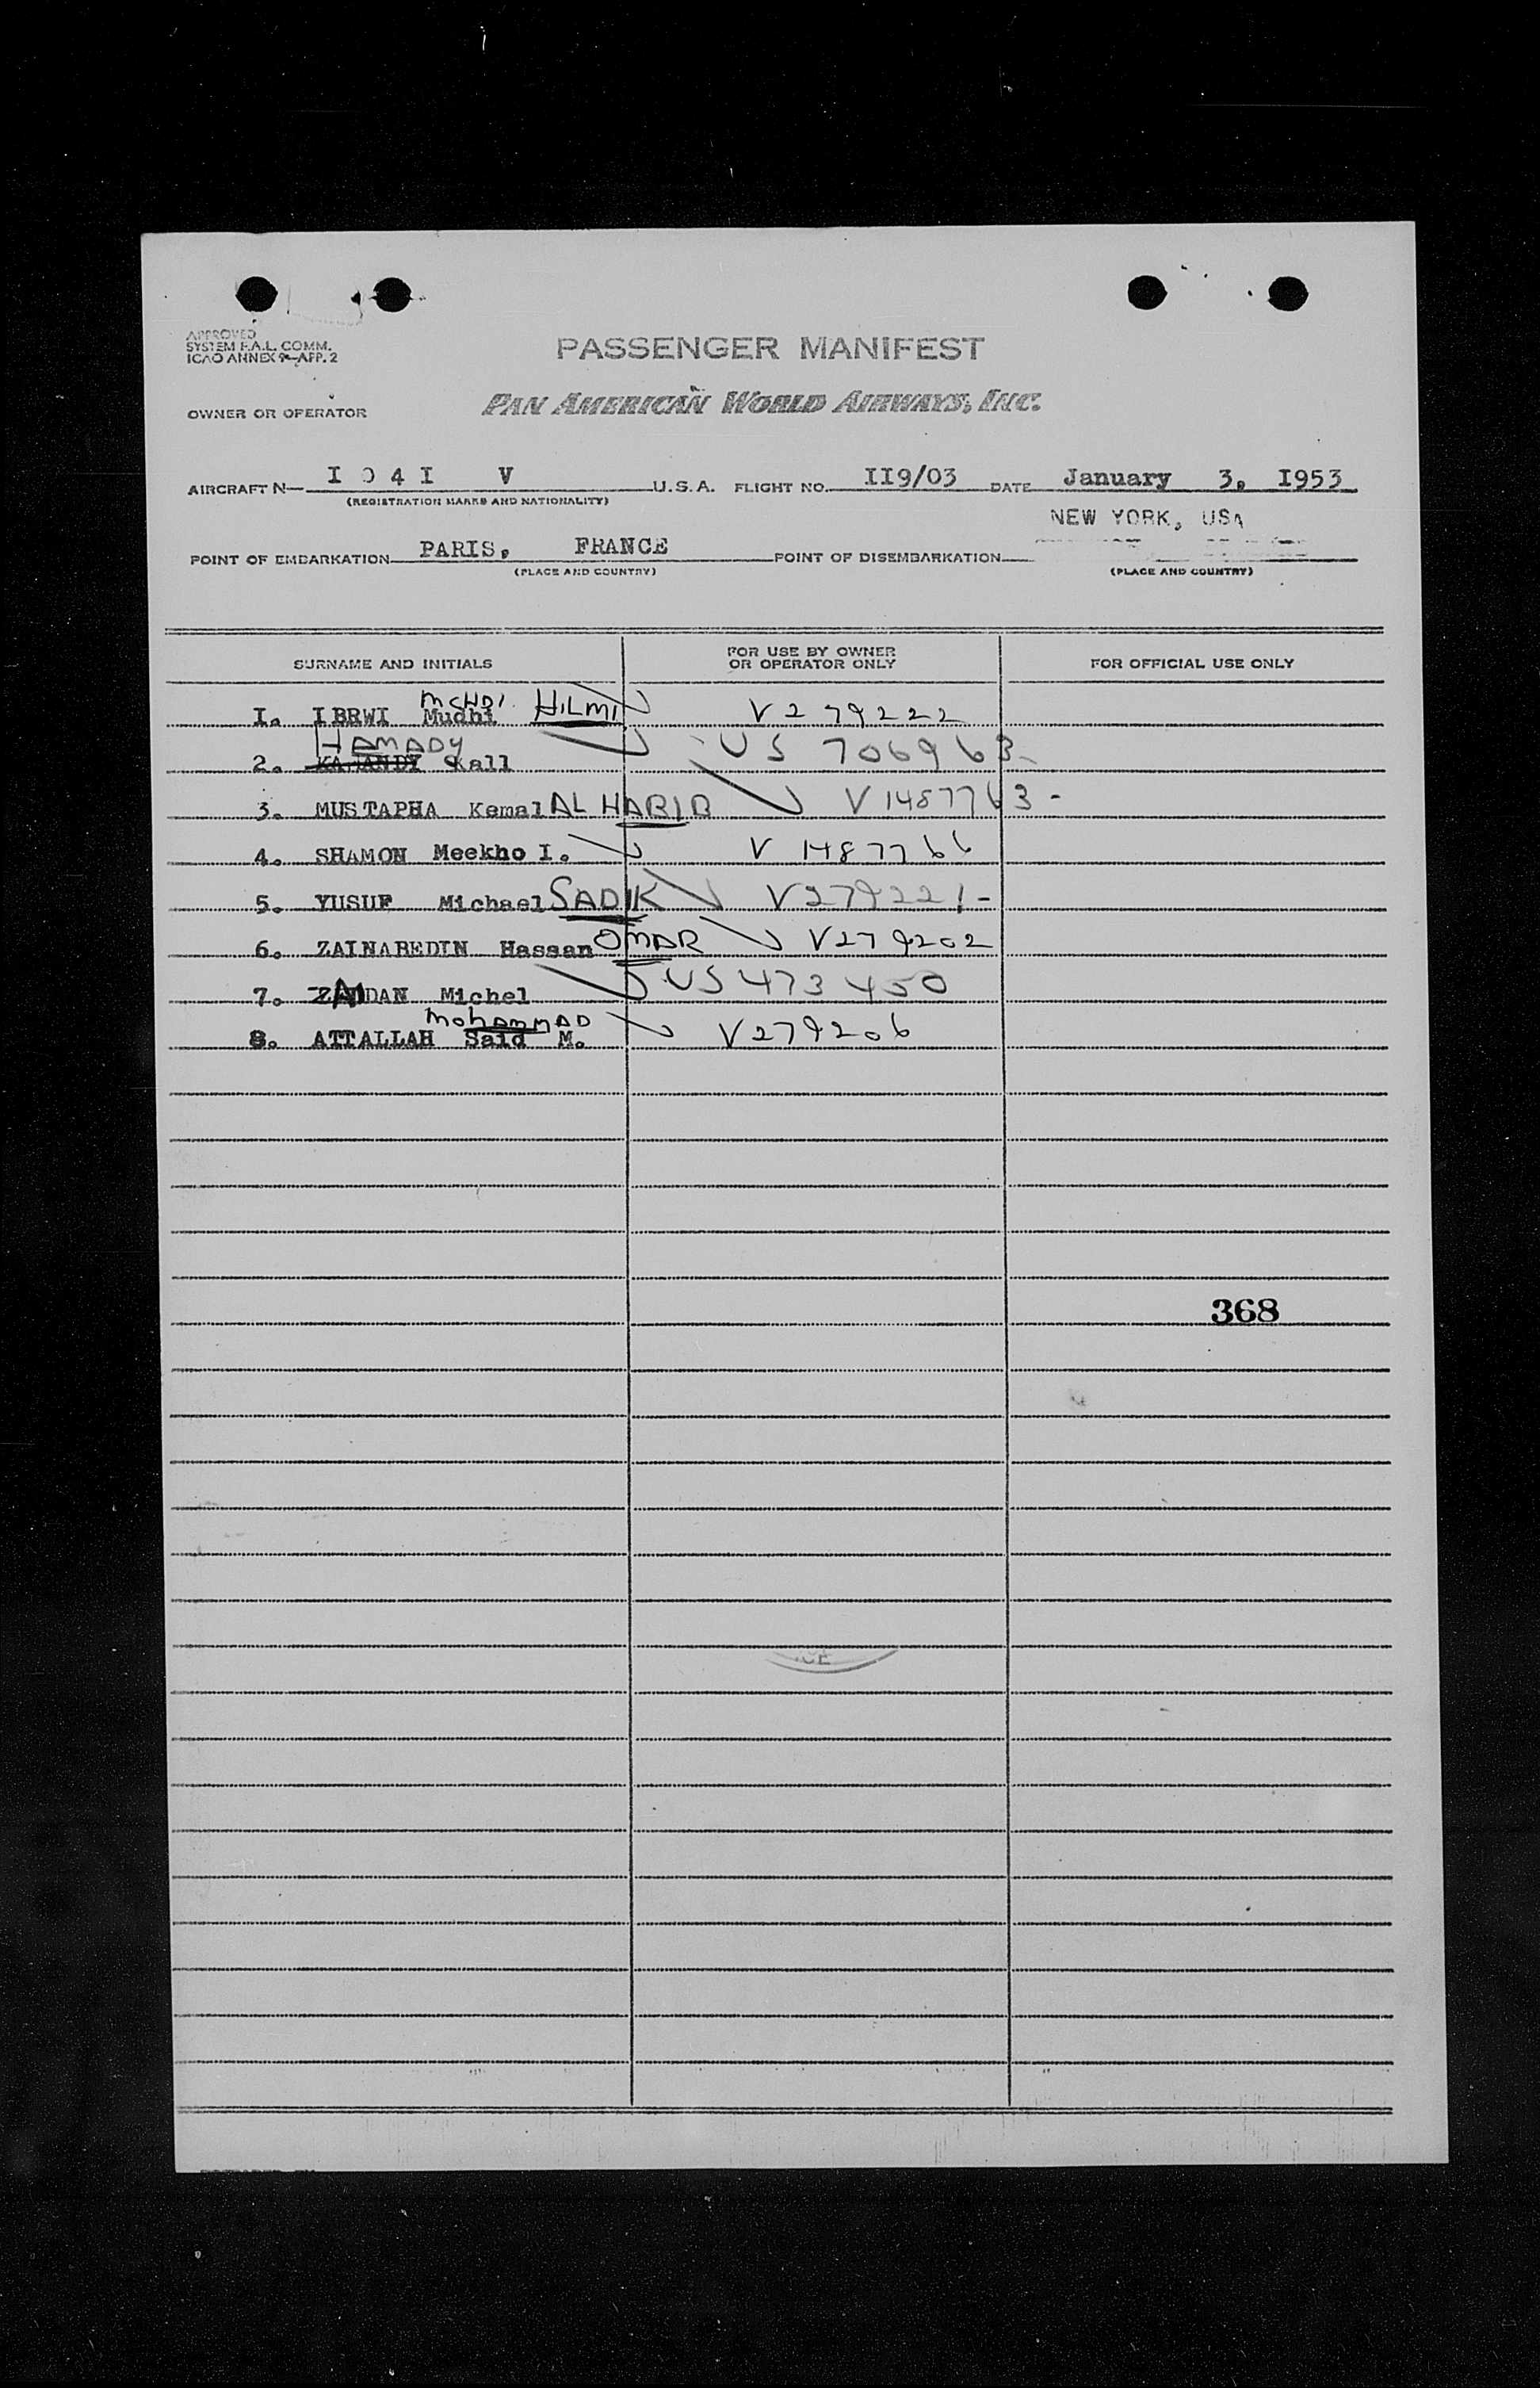 APPROVED
SYSTEM F.A.L. COMM.
ICAO ANNEX 9—APP. 2
PASSENGER MANIFEST
OWNER OR OPERATOR
PAN AMERICAN WORLD AIRWAYS, INC.
AIRCRAFT N— I 0 4 I V U.S.A. FLIGHT NO. II9/03 DATE January 3, I953
(REGISTRATION MARKS AND NATIONALITY)
NEW YORK, USA
POINT OF EMBARKATION PARIS, FRANCE POINT OF DISEMBARKATION
(PLACE AND COUNTRY) (PLACE AND COUNTRY)
SURNAME AND INITIALS FOR USE BY OWNER OR OPERATOR ONLY FOR OFFICIAL USE ONLY
MCHDI
I. IBRWI Mudhi HILMI V279222
HAMADY
2. Kall US 706963
3. MUSTAPHA Kemal AL HABIB V1487763-
4. SHAMON Meekho I. V 1487766
5. YUSUF Michael SADIK V279221-
6. ZAINABEDIN Hassan OMAR V279202
7. DAN Michel US 473450
MOHAMMAD
8. ATTALLAH Said M. V279206
368